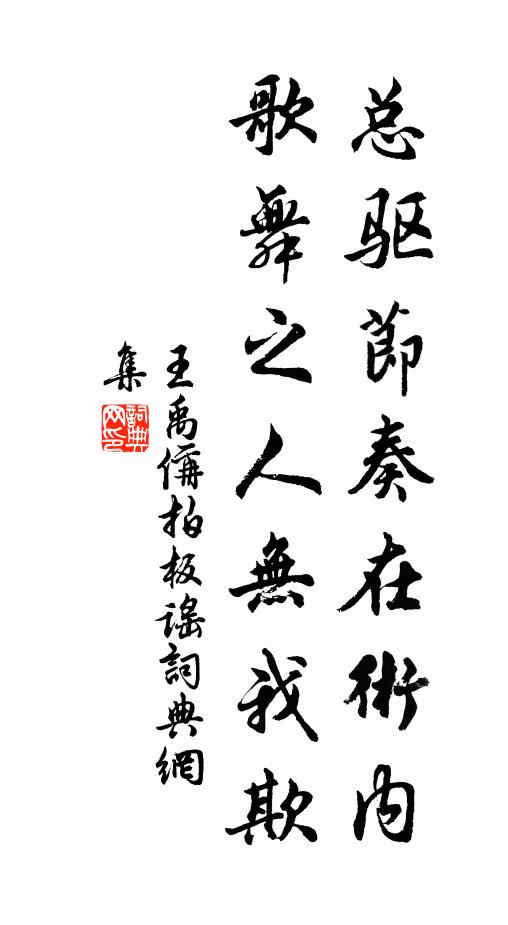 总驱節奏在術内
歌舞之人無我欺
王禹偁拍板谣詞典網
集
詞典网印